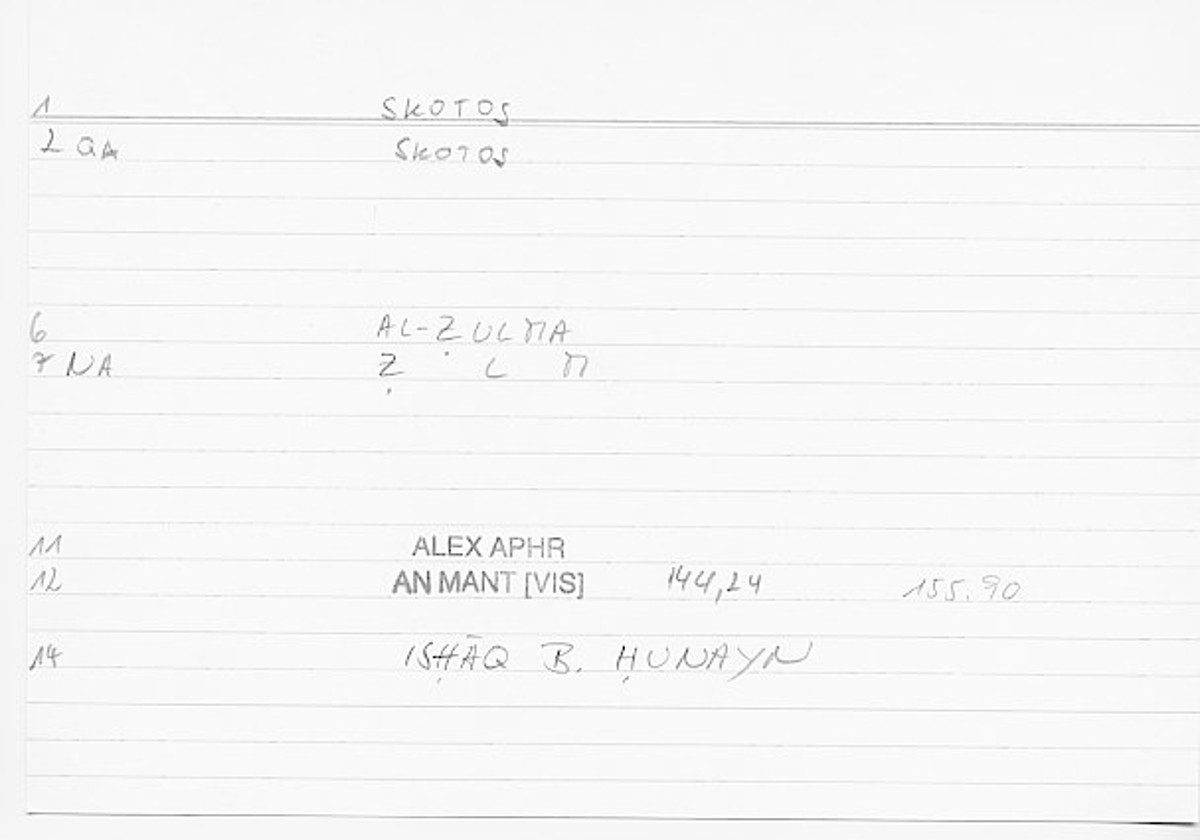 1 SKOTOS
2 QA SKOTOS
6 AL-ẒULMA
7 NA Ẓ L M
11 ALEX APHR
12 AN MANT [VIS] 144,24 155.90
14 ISḤĀQ B. ḤUNAYN